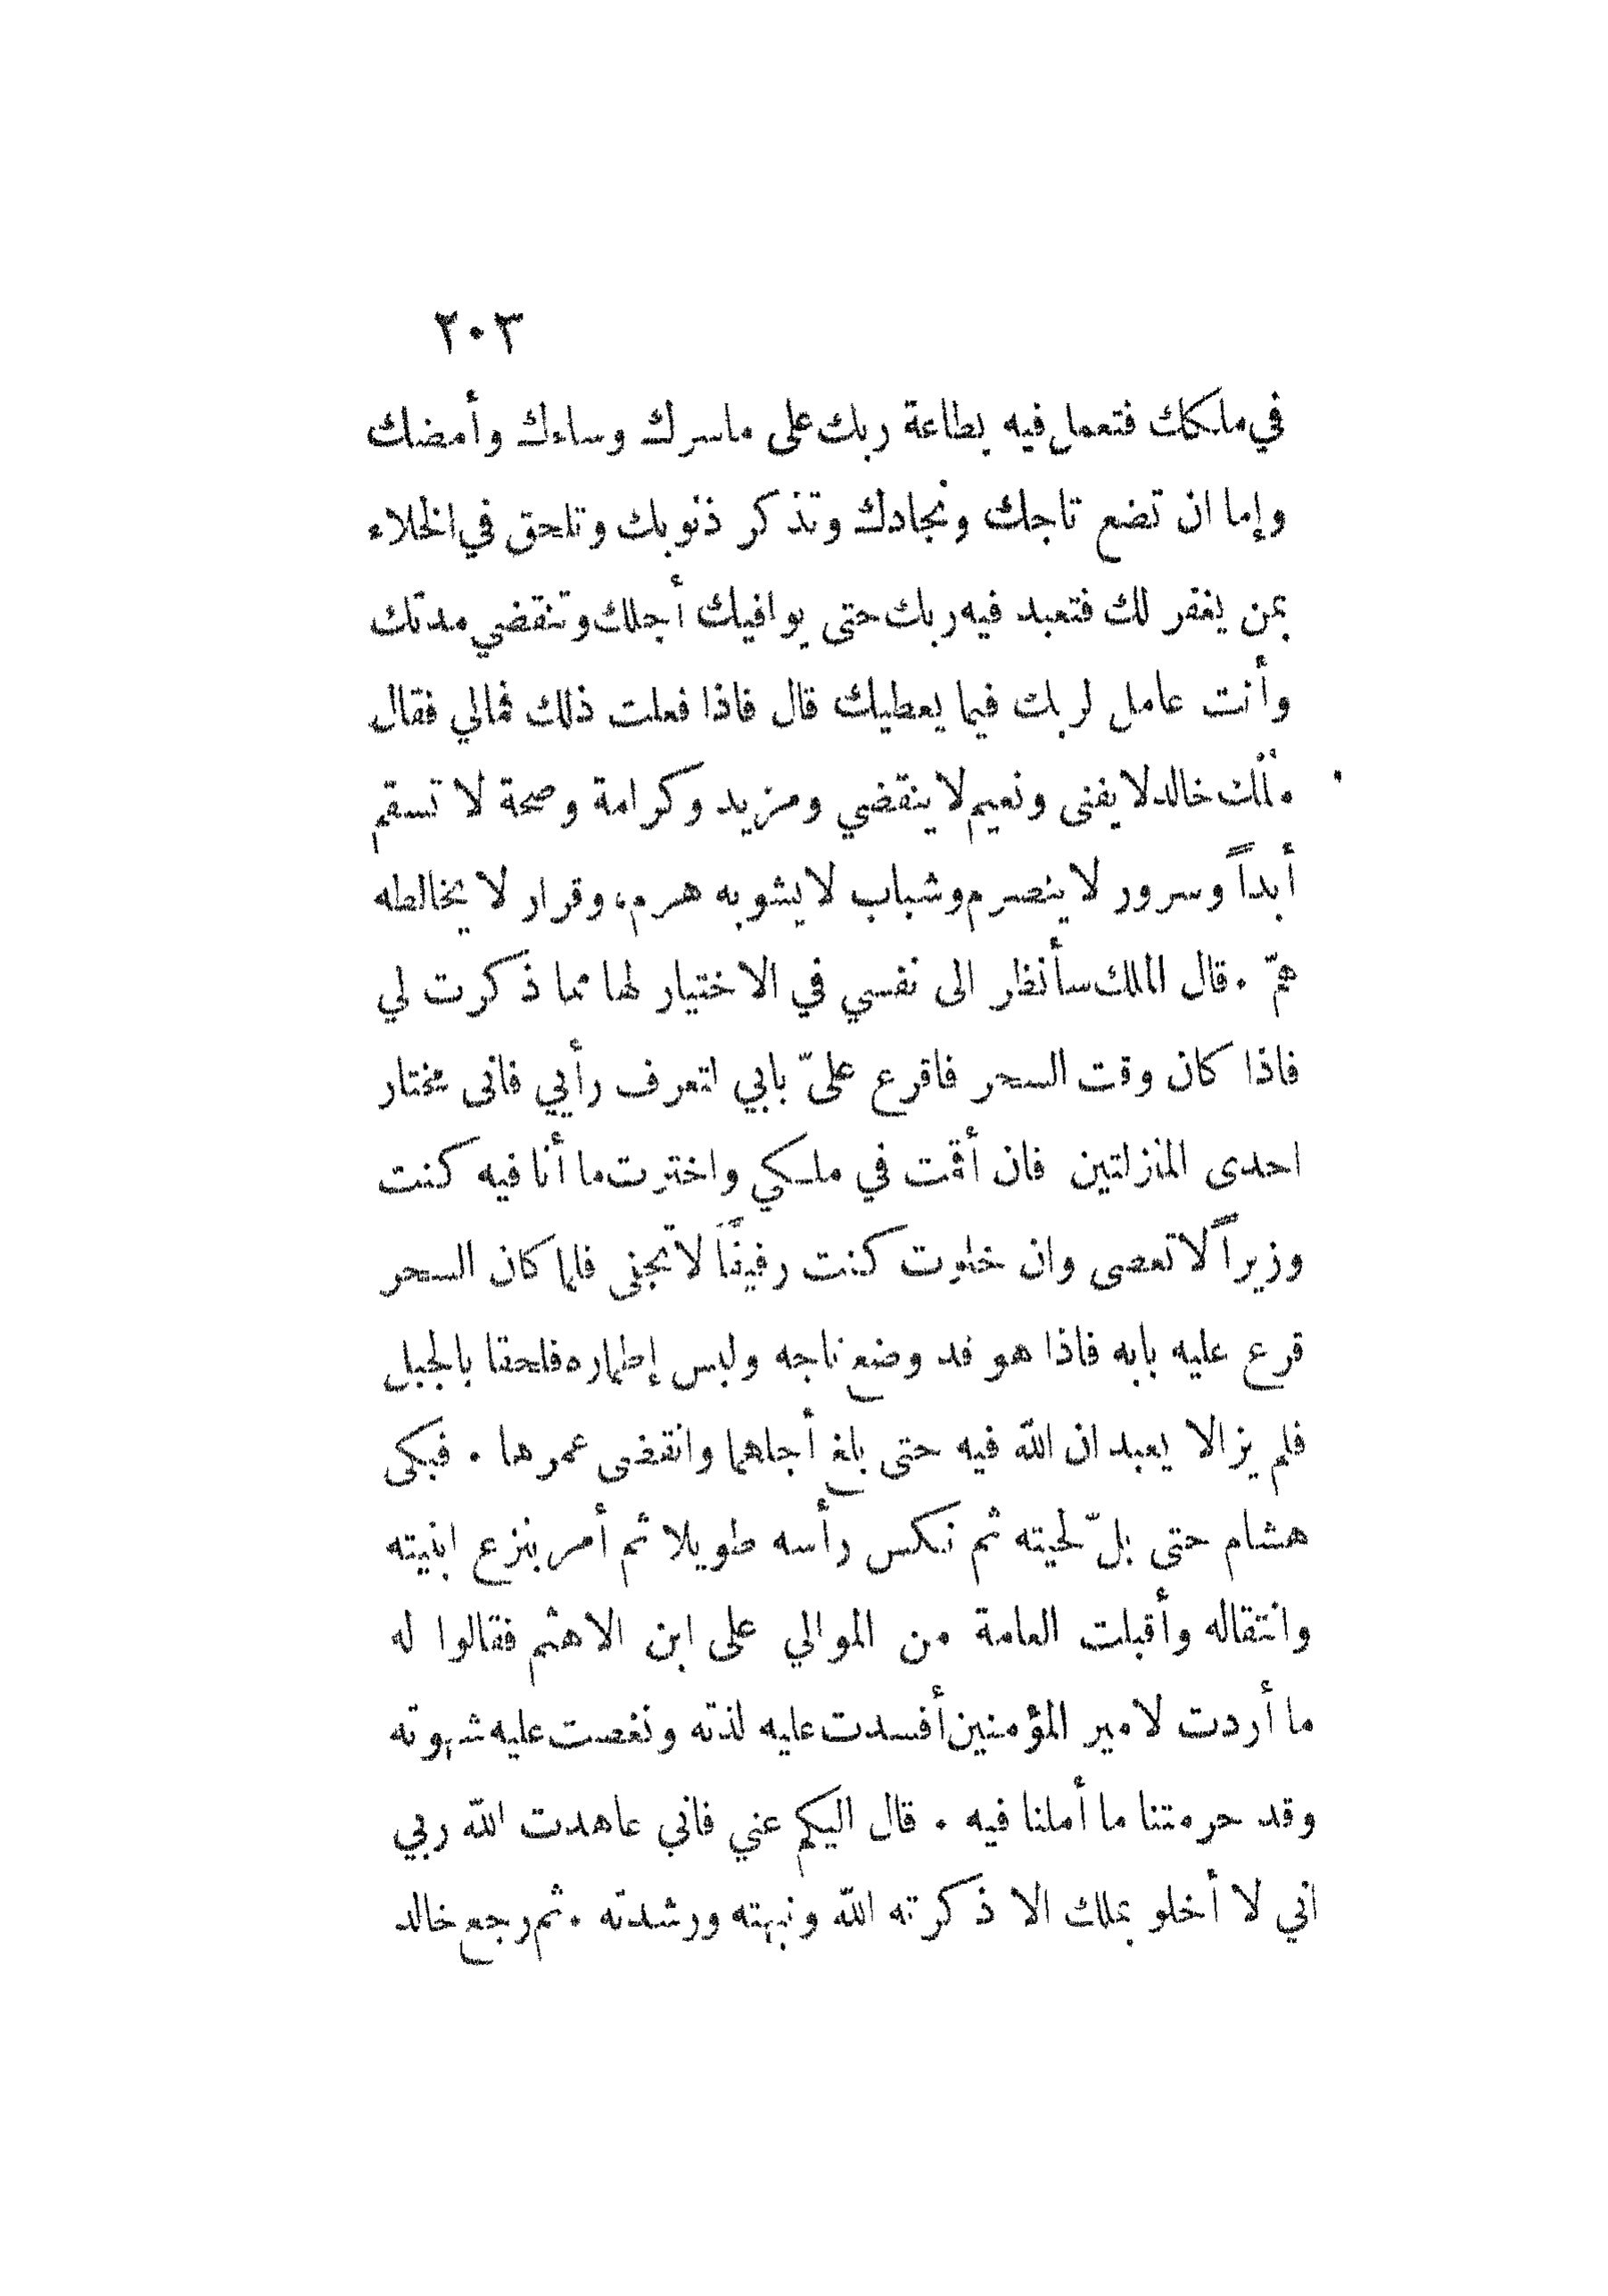 ٢٠٣
في ملكك فتعمل فيه بطاعة ربك على ماسرك وساءك وأمضك
وإما ان تضع تاجك ونجادك وتذكر ذنوبك وتلحق في الخلاء
بمن يغفر لك فتعبد فيه ربك حتى يوافيك أجلك وتنقضي مدتك
وأنت عامل لربك فيما يعطيك قال فاذا فعلت ذلك فمالي فقال
ملك خالد لا يفنى ونعيم لا ينقضي ومزيد وكرامة وصحة لا تسقم
أبداً وسرور لا ينصرم وشباب لا يشوبه هرم، وقرار لا يخالطه
همّ . قال الملك سأنظر الى نفسي في الاختيار لها مما ذكرت لي
فاذا كان وقت السحر فاقرع علىّ بابي لتعرف رأيي فانى مختار
احدى المنزلتين فان أقمت في ملكي واخترت ما أنا فيه كنت
وزيراً لا تعصى وان خلوت كنت رفيقاً لا تجفى فلما كان السحر
قرع عليه بابه فاذا هو قد وضع تاجه ولبس إطماره فلحقا بالجبل
فلم يزالا يعبدان الله فيه حتى بلغ أجلهما وانقضى عمرها . فبكى
هشام حتى بلّ لحيته ثم نكس رأسه طويلا ثم أمر بنزع ابنيته
وانتقاله وأقبلت العامة من الموالي على ابن الاهثم فقالوا له
ما أردت لامير المؤمنين أفسدت عليه لذته ونغصت عليه شهوته
وقد حرمتنا ما أملنا فيه . قال اليكم عني فانى عاهدت الله ربي
اني لا أخلو بملك الا ذكرته الله ونبهته ورشدته . ثم رجع خالد